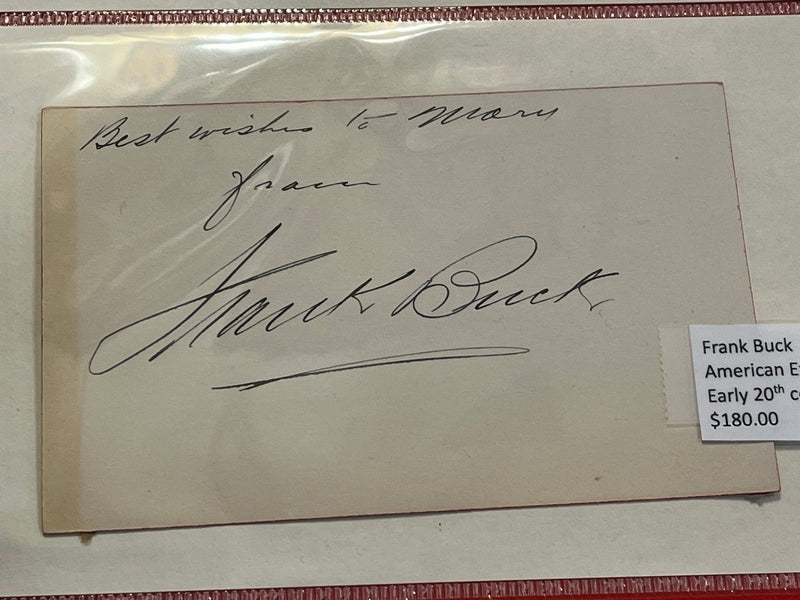 Best wishes to Mary
from
Frank Buck
Frank Buck
American E
Early 20th c
$180.00